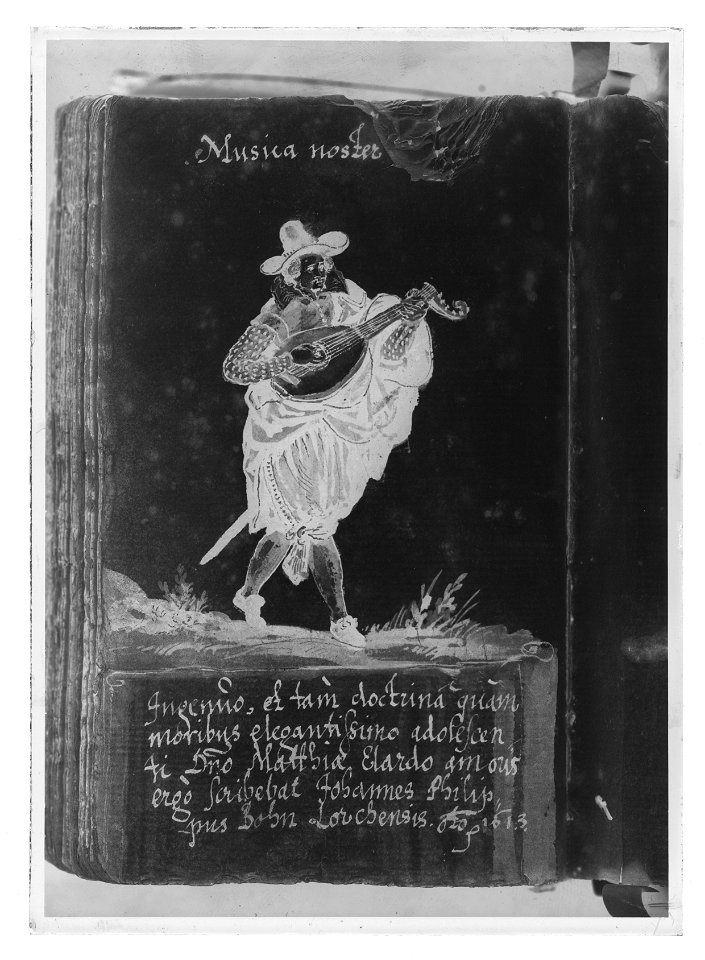 Musica noster
Ingenũo, et tam̃ doctrinâ quàm
moribus elegantißimo adolescen
ti Dño Matthiæ Elardo amoris
ergò scribebat Johannes Philip,
pus Bohn Lorchensis. 1613.